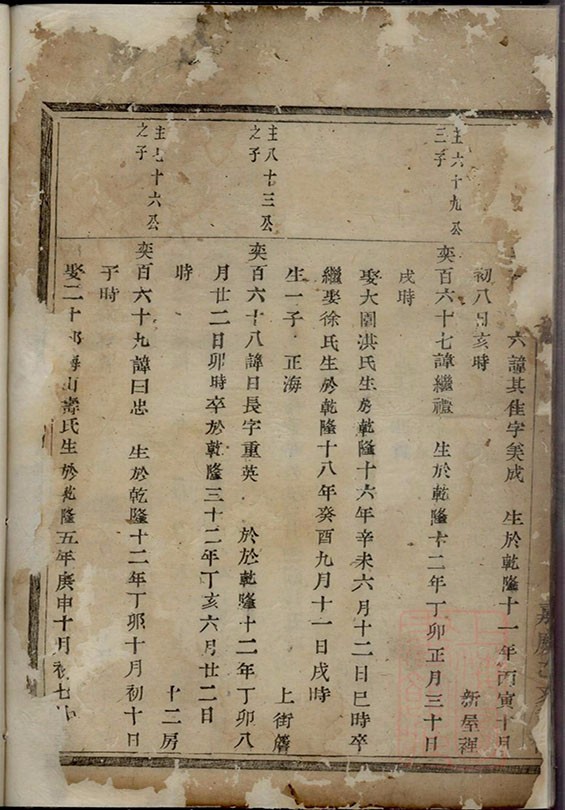 六諱其隹字美成 生於乾隆十一年丙寅十月
初八日亥時 新屋裡
主六十九公
三子
奕百六十七諱繼禮 生於乾隆十二年丁卯正月三十日
戌時
娶大園洪氏生於乾隆十六年辛未六月十二日巳時卒
繼娶徐氏生於乾隆十八年癸酉九月十一日戌時
生一子 正海 上街簷
主八十三公
之子
奕百六十八諱日長字重英 於於乾隆十二年丁卯八
月廿二日卯時卒於乾隆三十二年丁亥六月廿二日
時 十二房
主七十六公
之子
奕百六十九諱曰忠 生於乾隆十二年丁卯十月初十日
子時
娶二十都 山壽氏生於乾隆五年庚申十月初七